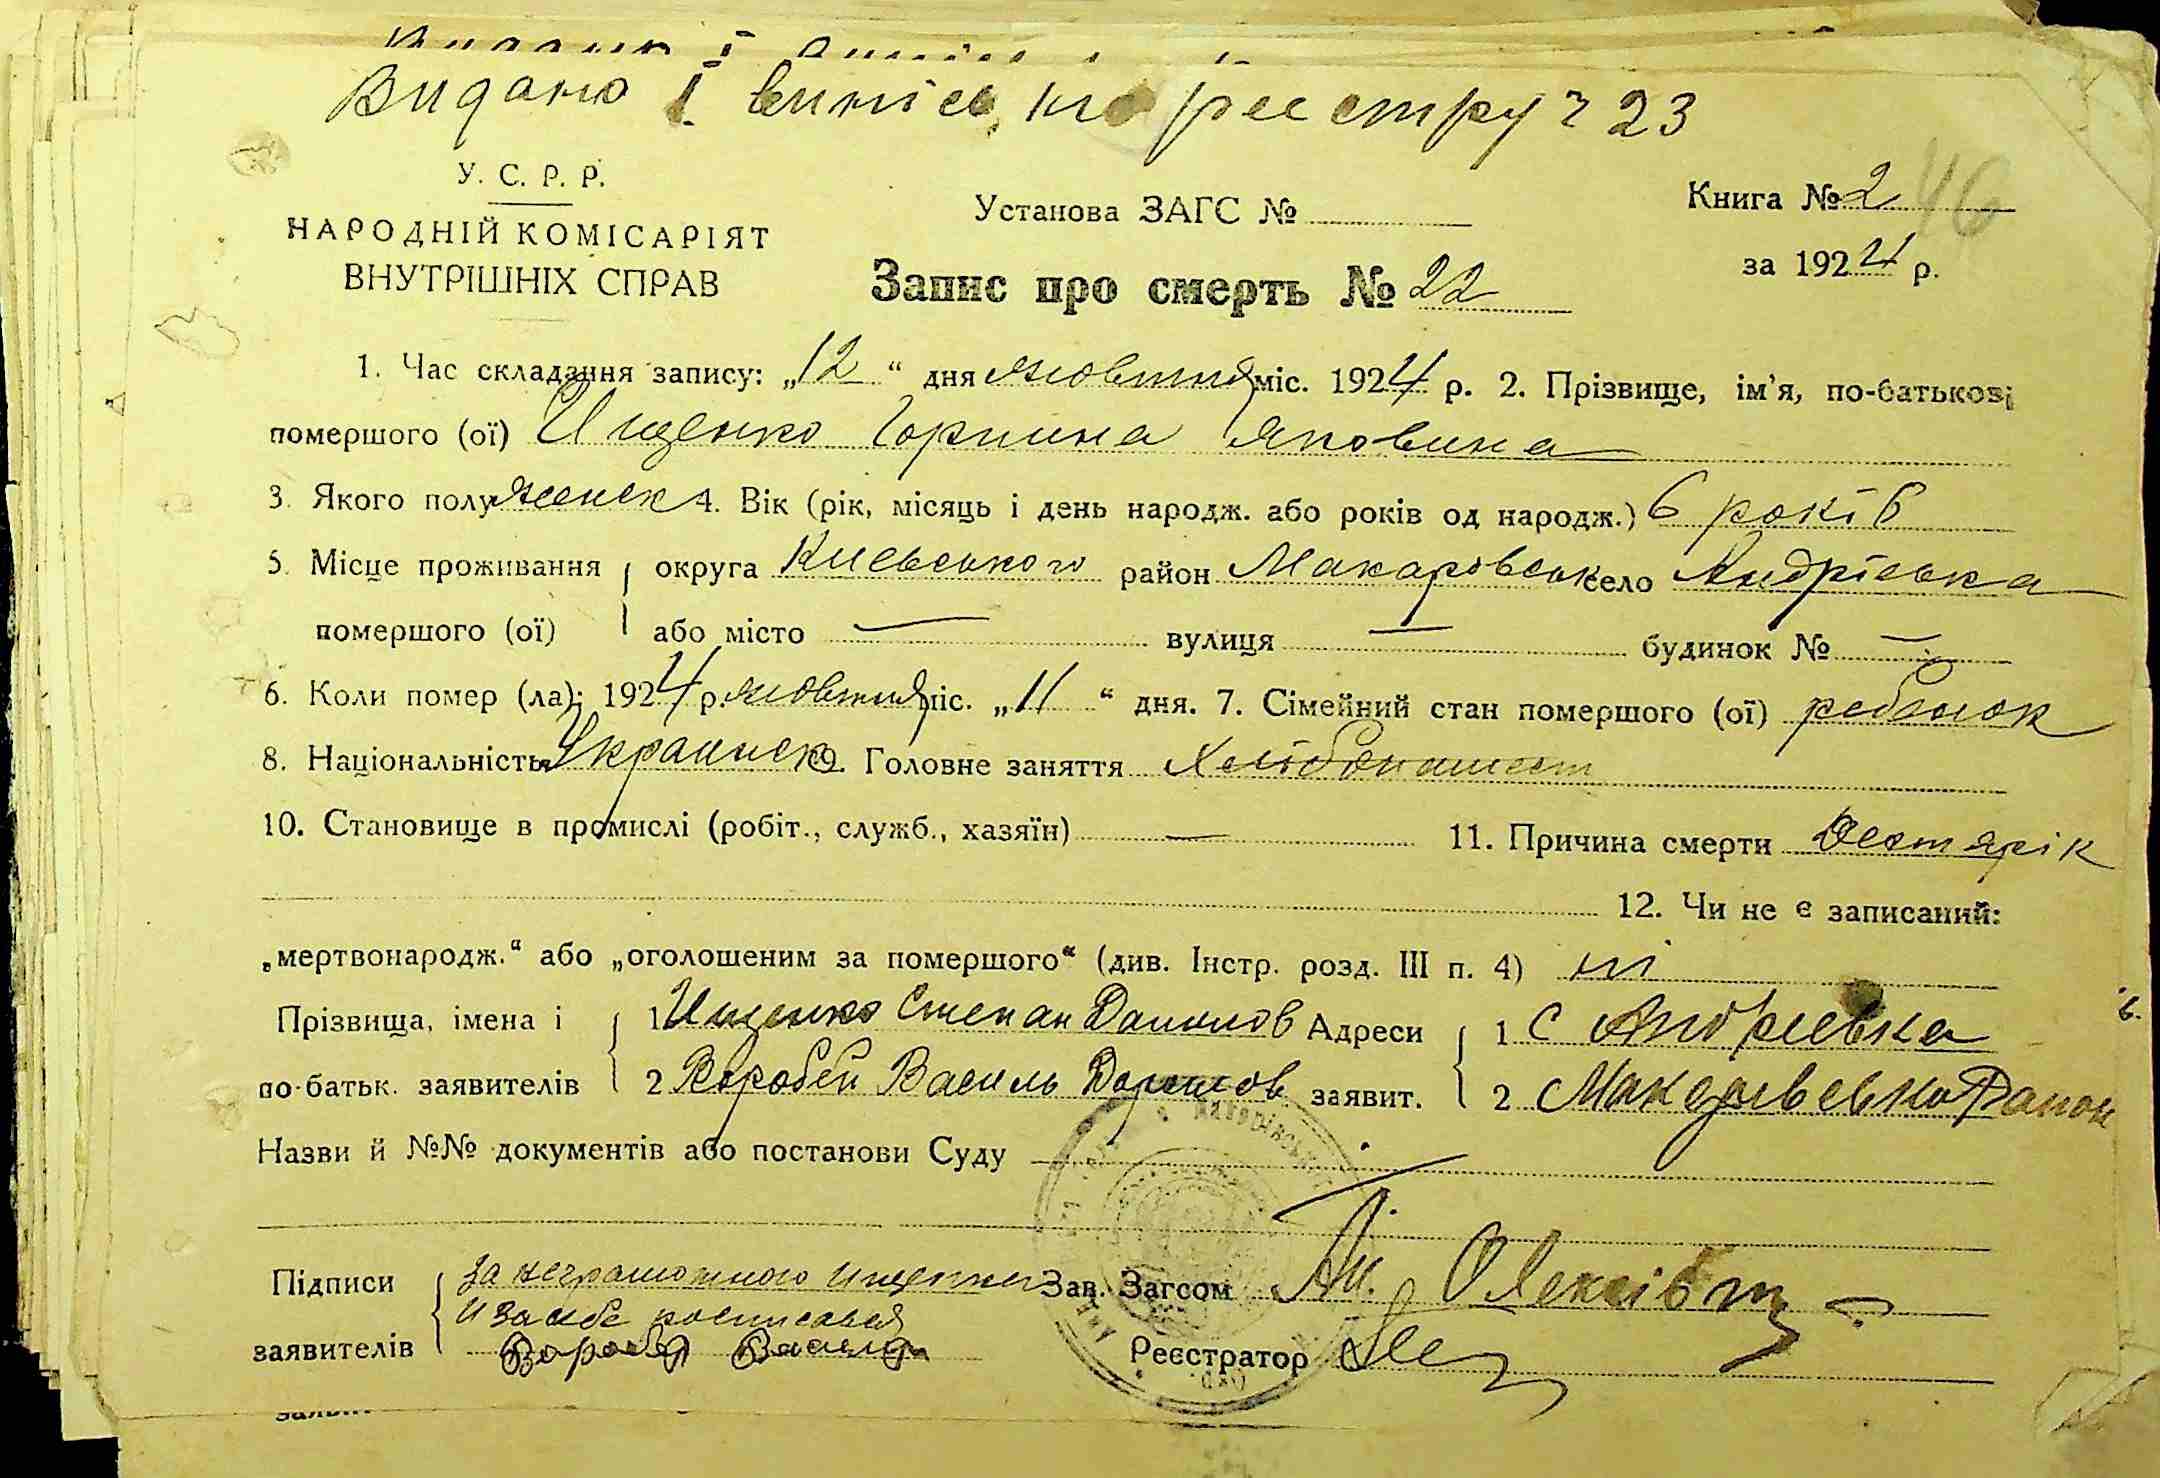 Видано і виписъ по реестру ч 23
У. С. Р. Р.
НАРОДНІЙ КОМІСАРІЯТ
ВНУТРІШНІХ СПРАВ
Установа ЗАГС №
Книга № 2 46
за 1924 р.
Запис про смерть № 22
1. Час складання запису: „12“ дня жовтня міс. 1924 р. 2. Прізвище, ім'я, по-батькові
помершого (ої) Ищенко Горпина Яковина
3. Якого полу женск 4. Вік (рік, місяць і день народж. або років од народж.) 6 років
5. Місце проживання округа Киевського район Макаровськ село Андрієвка
помершого (ої) або місто — вулиця — будинок № —
6. Коли помер (ла): 1924 р. жовтня міс. „11“ дня. 7. Сімейний стан помершого (ої) ребьонок
8. Національність Украинск 9. Головне заняття Хлібопашест
10. Становище в промислі (робіт., служб., хазяїн) — 11. Причина смерти
12. Чи не є записаний:
„мертвонародж.“ або „оголошеним за помершого“ (див. Інстр. розд. III п. 4) ні
Прізвища, імена і 1 Ищенко Степан Данилов Адреси 1 С Андриевка
по-батьк. заявителів 2 Воробей Василь заявит. 2 Район
Назви й №№ документів або постанови Суду —
Підписи За неграмотного Ищенка Зав. Загсом
и за себе росписався
заявителів Воробей Василь Реєстратор